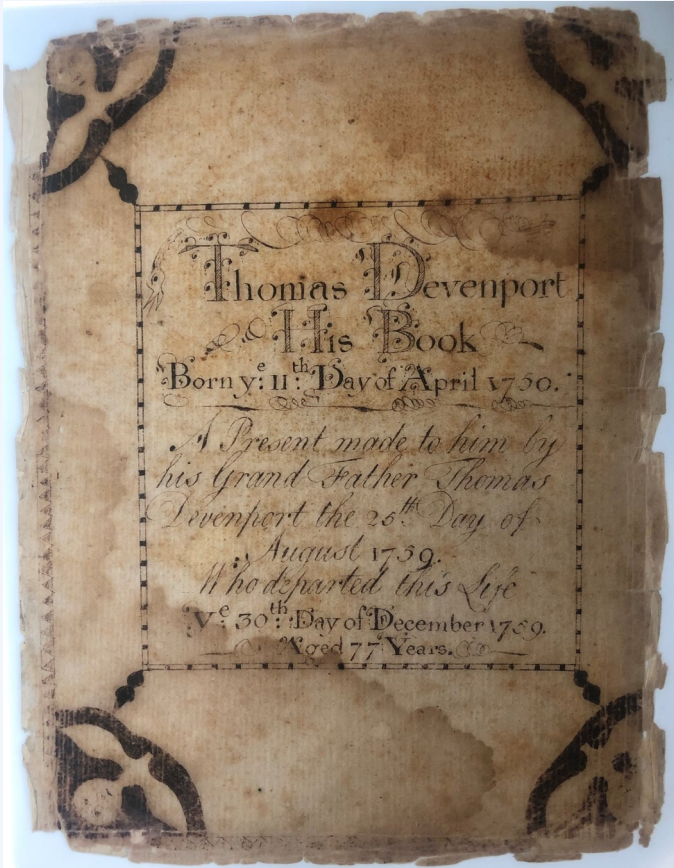 Thomas Devenport
His Book
Born yᵉ: 11ᵗʰ: Day of April 1750.
A Present made to him by
his Grand Father Thomas
Devenport the 25ᵗʰ Day of
August 1759.
Who departed this Life
Yᵉ 30ᵗʰ: Day of December 1759.
Aged 77 Years.